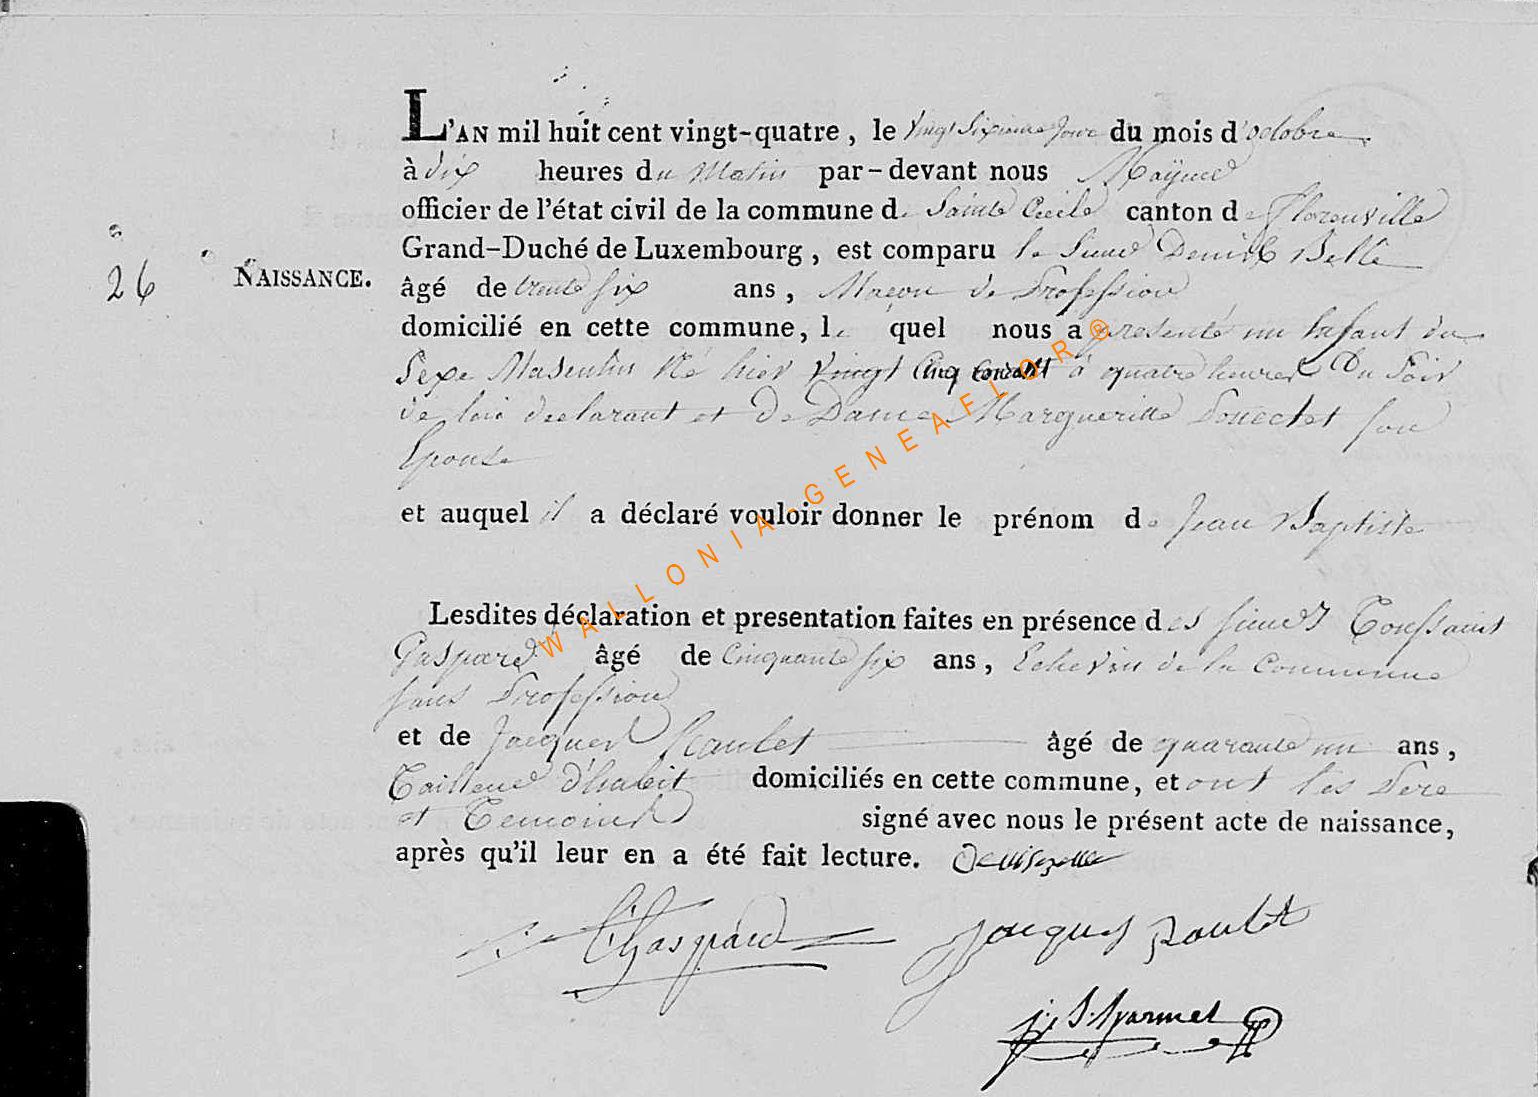 L'AN mil huit cent vingt-quatre, le vingt Sixieme jour du mois d'octobre
à dix heures du Matin par-devant nous
officier de l'état civil de la commune de Sainte Cecile canton de florenville
Grand-Duché de Luxembourg, est comparu le Sieur Denis Belle
26 NAISSANCE. âgé de trente six ans, Maçon de Profession
domicilié en cette commune, le quel nous a presenté un Enfant du
Sexe Masculin Né hier vingt Cinq courant à quatre heures Du Soir
de lui declarant et de Dame Margueritte son
Epouse
et auquel il a déclaré vouloir donner le prénom de Jean Baptiste
Lesdites déclaration et presentation faites en présence des sieurs Toussaint
Gaspard âgé de Cinquante six ans, Echevin de la Commune
sans Profession
et de Jacques Raulet âgé de quarante un ans,
Tailleur d'habit domiciliés en cette commune, et ont les Pere
et Temoins signé avec nous le présent acte de naissance,
après qu'il leur en a été fait lecture.
T Gaspard Jacques Roulet
WALLONIA-GENEAFLOR®